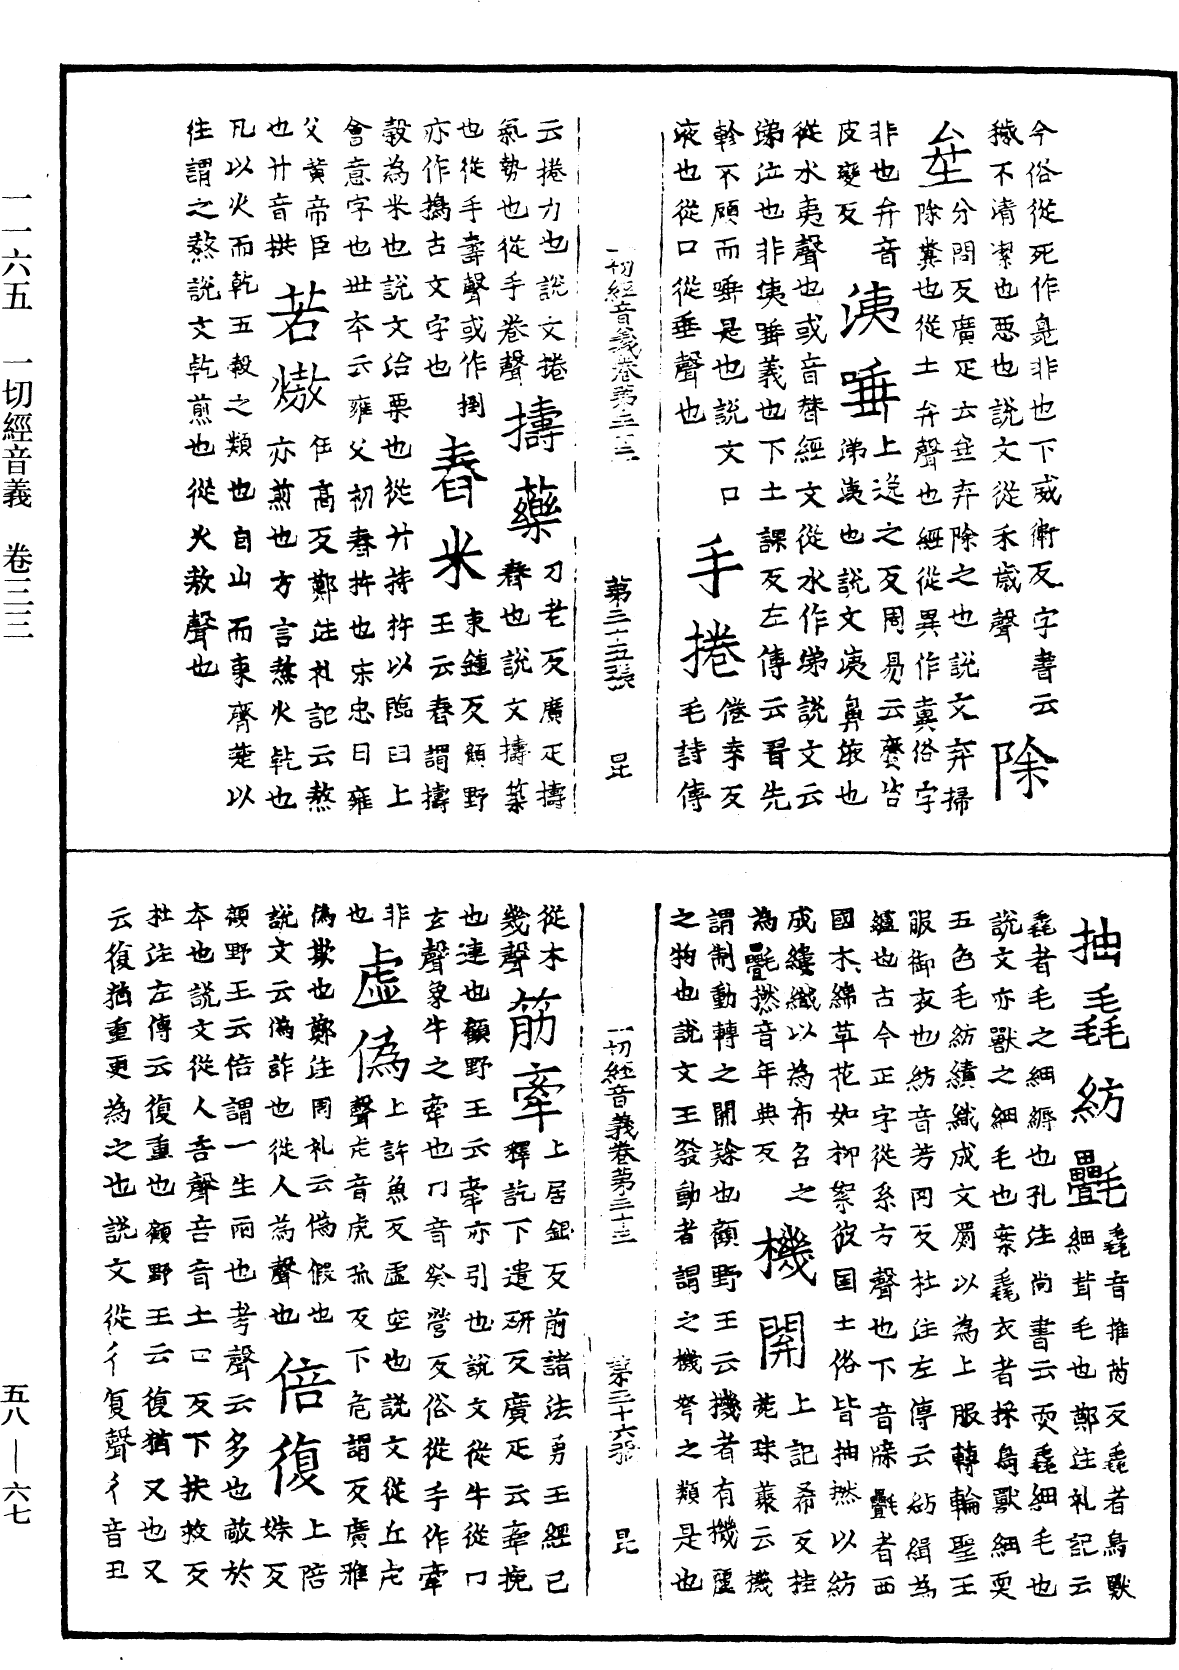 一一六五　一切經音義　卷三三
五八—六七
今俗從死作臰非也下威衛反字書云
穢不清潔也惡也說文從禾歲聲　除
坌　分問反廣疋云坌弃除之也說文弃掃
除糞也從土弁聲也經從異作糞俗字
非也弁音　洟唾　上逸之反周易云齎咨
皮變反　涕洟也說文洟鼻液也
從水夷聲也或音替經文從水作涕說文云
涕泣也非洟唾義也下土課反左傳云胥先
軫不顧而唾是也說文口　手捲　倦奉反
液也從口從垂聲也　毛詩傳
一切經音義卷第三十三　第三十五張　昆
云捲力也說文捲　擣藥　刀老反廣疋擣
氣勢也從手卷聲　舂也說文擣築
也從手壽聲或作捯　舂米　束鍾反顧野
亦作搗古文字也　王云舂謂擣
穀為米也說文治粟也從廾持杵以臨臼上
會意字也世本云雍父初舂杵也宋忠曰雍
父黃帝臣　若㷅　任高反鄭注礼記云熬
也廾音拱　亦煎也方言熬火乾也
凡以火而乾五穀之類也自山而東齊楚以
往謂之熬說文乾煎也從火敖聲也
抽毳紡㲲　毳音推芮反毳者鳥獸
細茸毛也鄭注礼記云
毳者毛之細縟也孔注尚書云耎毳細毛也
說文亦獸之細毛也案毳衣者採鳥獸細耎
五色毛紡績織成文罽以為上服轉輪聖王
服御衣也紡音芳罔反杜注左傳云紡緝為
纑也古今正字從糸方聲也下音牒㲲者西
國木綿草花如柳絮彼国土俗皆抽撚以紡
成縷織以為布名之　機關　上記希反桂
為㲲撚音年典反　菀珠叢云機
謂制動轉之關鍵也顧野王云機者有機關
之物也說文主發動者謂之機弩之類是也
一切經音義卷第三十三　第三十六張　昆
從木　筋牽　上居銀反前諸法勇王經已
幾聲　釋訖下遣硏反廣疋云牽挽
也連也顧野王云牽亦引也說文從牛從冂
玄聲象牛之牽也冂音癸營反俗從手作㩃
非　虛偽　上許魚反虛空也說文從丘虍
也　聲虍音虎孤反下危謂反廣雅
偽欺也鄭注周礼云偽假也　倍復　上陪
說文云偽詐也從人為聲也　姝反
顧野王云倍謂一生兩也考聲云多也蔽於
本也說文從人咅聲咅音土口反下扶救反
杜注左傳云復重也顧野王云復猶又也又
云復猶重更為之也說文從彳复聲彳音丑